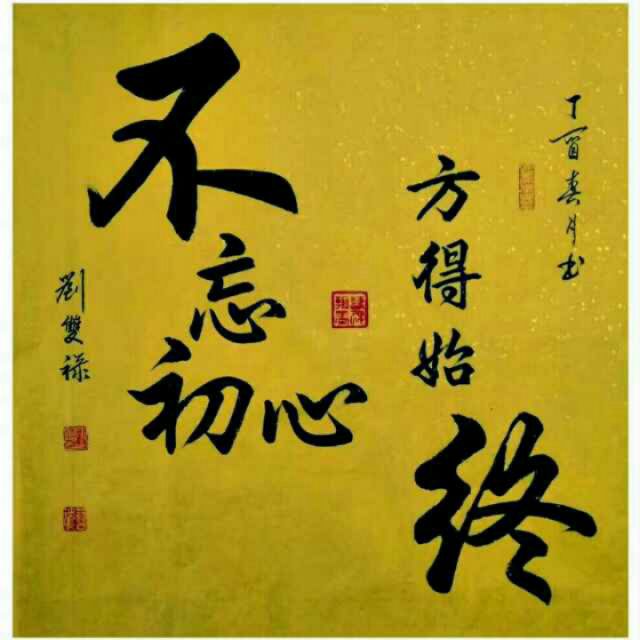 不
忘
初心
方得始
终
丁酉春月书
劉雙祿